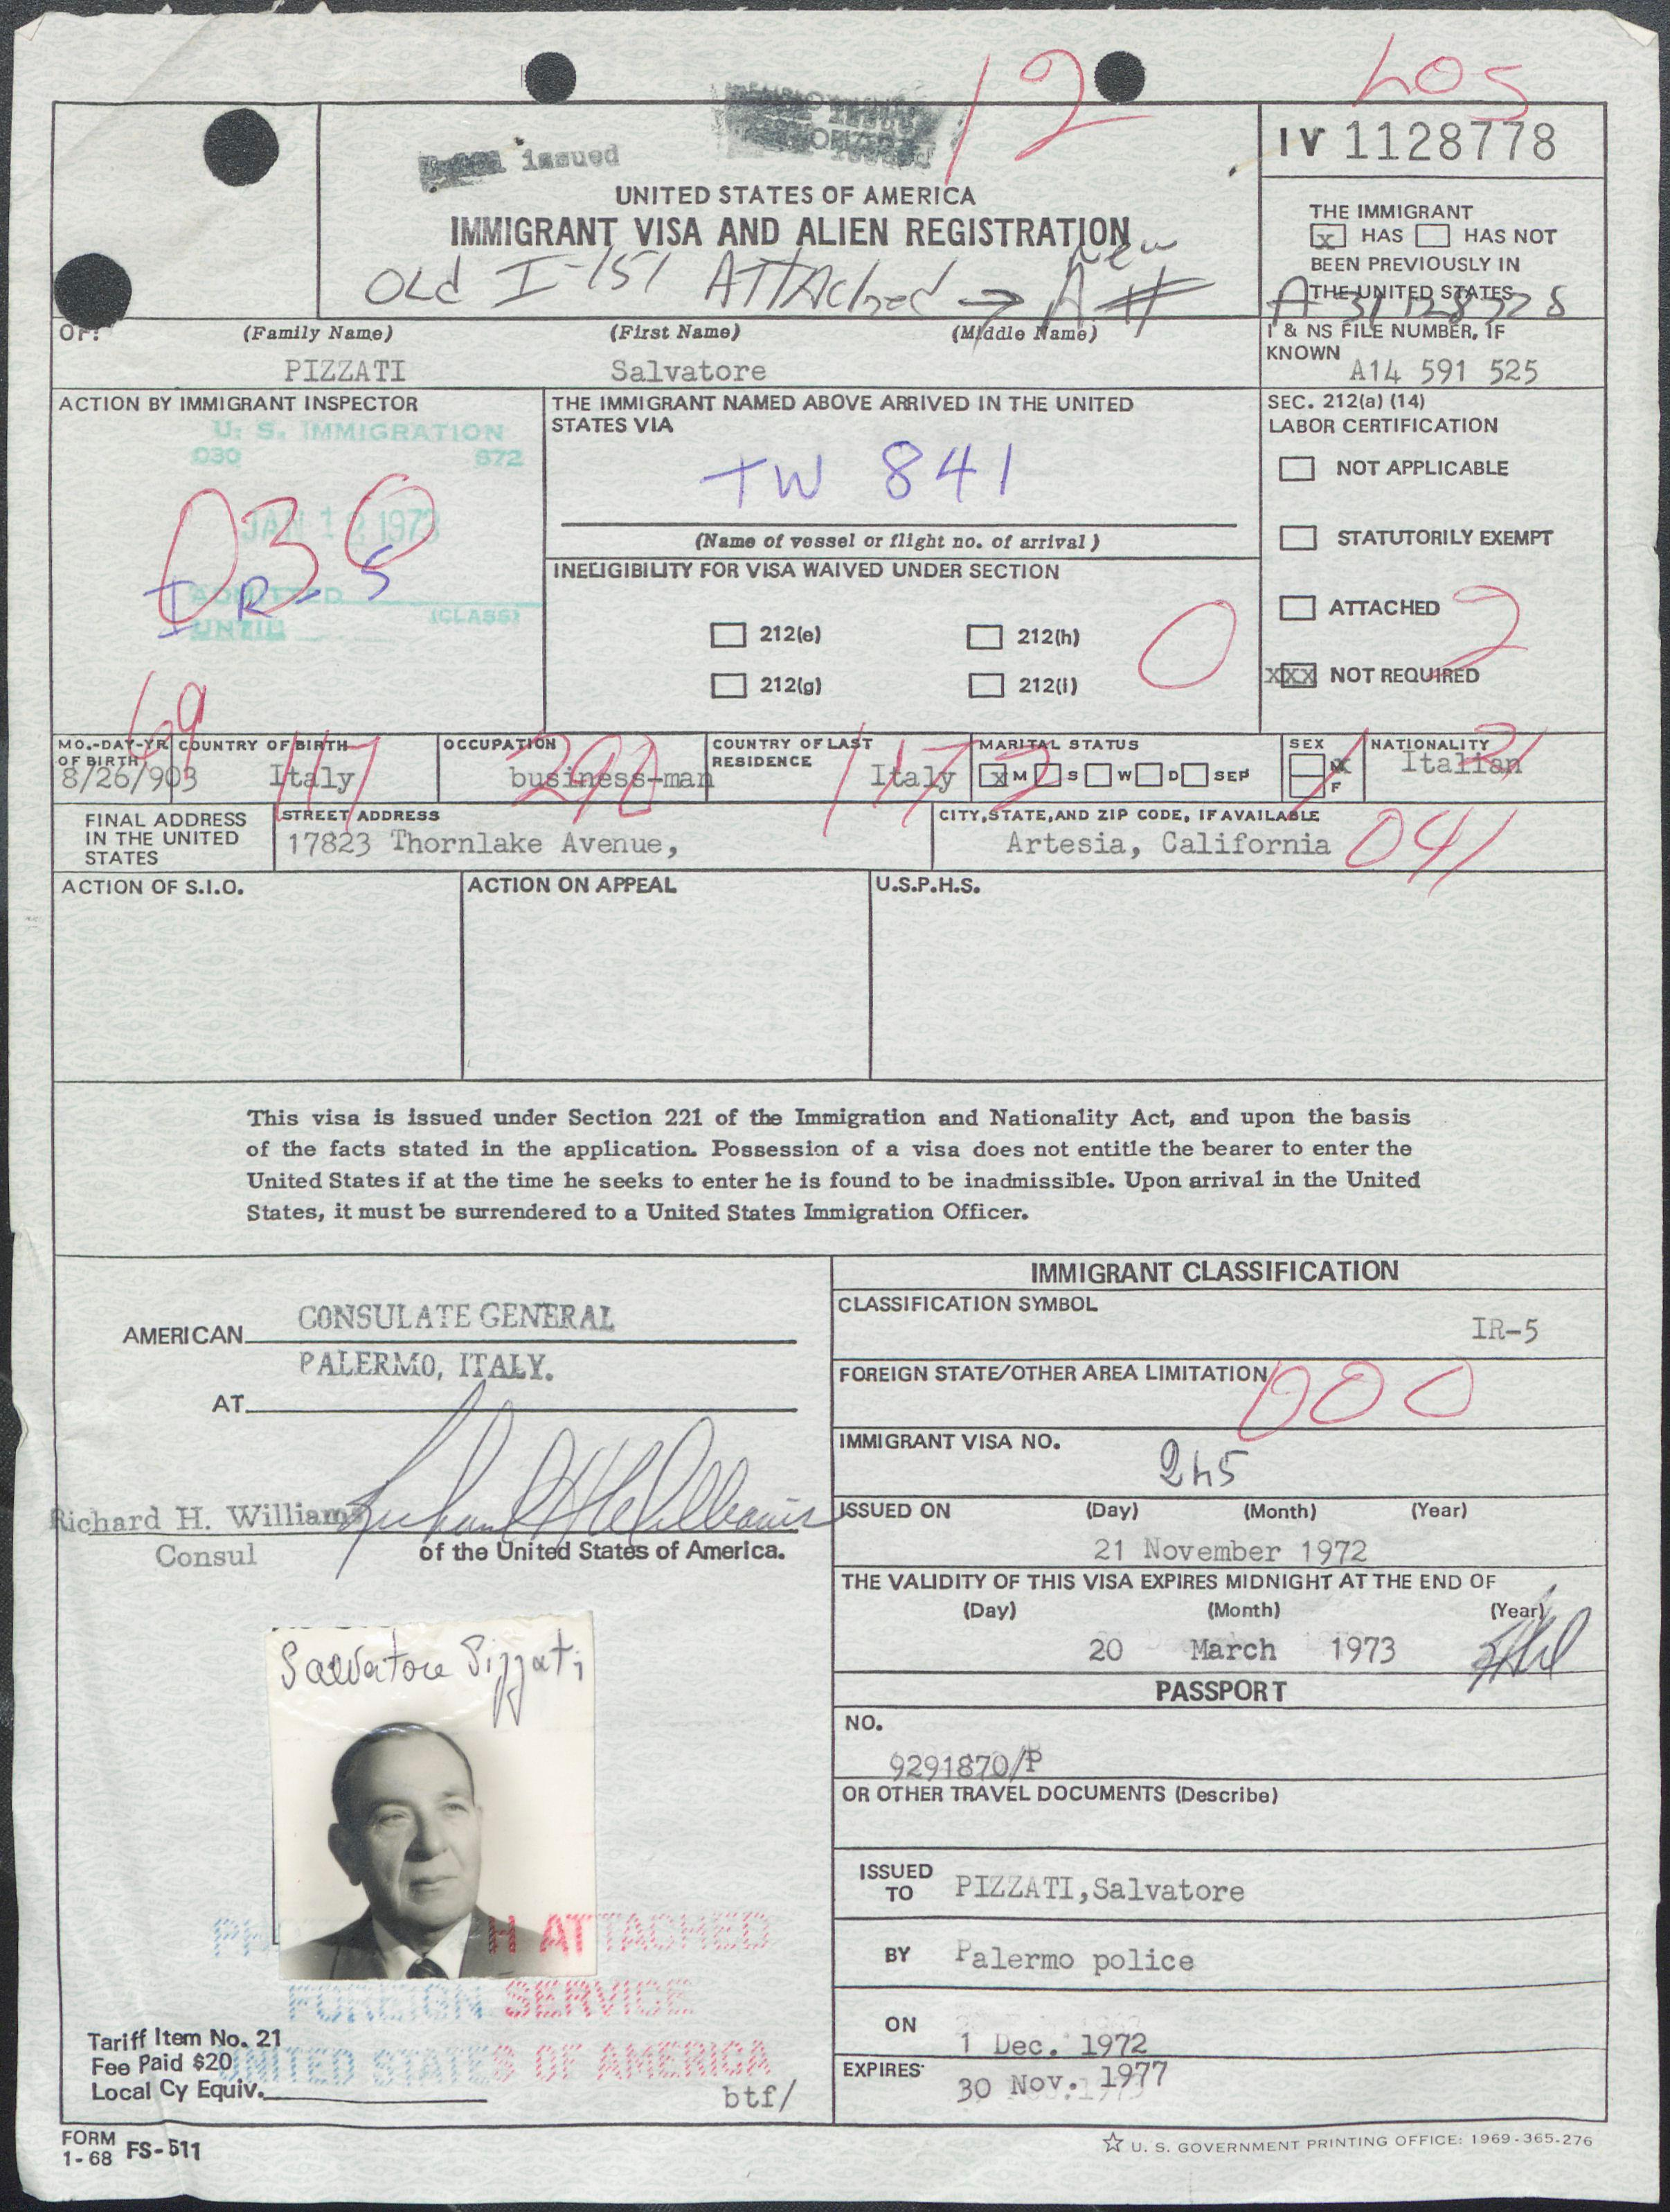 12
LOS
issued
IV 1128778
UNITED STATES OF AMERICA
IMMIGRANT VISA AND ALIEN REGISTRATION
Old I-151 Attached → New A #
THE IMMIGRANT
x HAS HAS NOT
BEEN PREVIOUSLY IN
THE UNITED STATES
OF: (Family Name) (First Name) (Middle Name)
PIZZATI Salvatore
I & NS FILE NUMBER, IF
KNOWN
A14 591 525
ACTION BY IMMIGRANT INSPECTOR
U. S. IMMIGRATION
030 672
JAN 12 1973
030
IR-5
ADMITTED
(CLASS)
UNTIL
THE IMMIGRANT NAMED ABOVE ARRIVED IN THE UNITED
STATES VIA
TW 841
(Name of vessel or flight no. of arrival)
INELIGIBILITY FOR VISA WAIVED UNDER SECTION
212(e) 212(h)
212(g) 212(i)
0
SEC. 212(a) (14)
LABOR CERTIFICATION
NOT APPLICABLE
STATUTORILY EXEMPT
ATTACHED
2
XXX NOT REQUIRED
69
MO.-DAY-YR
OF BIRTH
8/26/903
COUNTRY OF BIRTH
Italy
117
OCCUPATION
business-man
290
COUNTRY OF LAST
RESIDENCE
Italy
117
MARITAL STATUS
x M S W D SEP
2
SEX
x M
F
1
NATIONALITY
Italian
FINAL ADDRESS
IN THE UNITED
STATES
STREET ADDRESS
17823 Thornlake Avenue,
CITY, STATE, AND ZIP CODE, IF AVAILABLE
Artesia, California
041
ACTION OF S.I.O. ACTION ON APPEAL U.S.P.H.S.
This visa is issued under Section 221 of the Immigration and Nationality Act, and upon the basis
of the facts stated in the application. Possession of a visa does not entitle the bearer to enter the
United States if at the time he seeks to enter he is found to be inadmissible. Upon arrival in the United
States, it must be surrendered to a United States Immigration Officer.
AMERICAN CONSULATE GENERAL
PALERMO, ITALY.
AT
Richard H. Williams
Consul
of the United States of America.
IMMIGRANT CLASSIFICATION
CLASSIFICATION SYMBOL
IR-5
FOREIGN STATE/OTHER AREA LIMITATION
000
IMMIGRANT VISA NO.
245
ISSUED ON (Day) (Month) (Year)
21 November 1972
THE VALIDITY OF THIS VISA EXPIRES MIDNIGHT AT THE END OF
(Day) (Month) (Year)
20 March 1973
PASSPORT
NO.
9291870/P
OR OTHER TRAVEL DOCUMENTS (Describe)
ISSUED
TO
PIZZATI,Salvatore
BY Palermo police
ON
1 Dec. 1972
EXPIRES
30 Nov. 1977
Salvatore Pizzati
H ATTACHED
FOREIGN SERVICE
UNITED STATES OF AMERICA
Tariff Item No. 21
Fee Paid $20
Local Cy Equiv.
btf/
FORM
1-68 FS-511
☆ U. S. GOVERNMENT PRINTING OFFICE: 1969-365-276